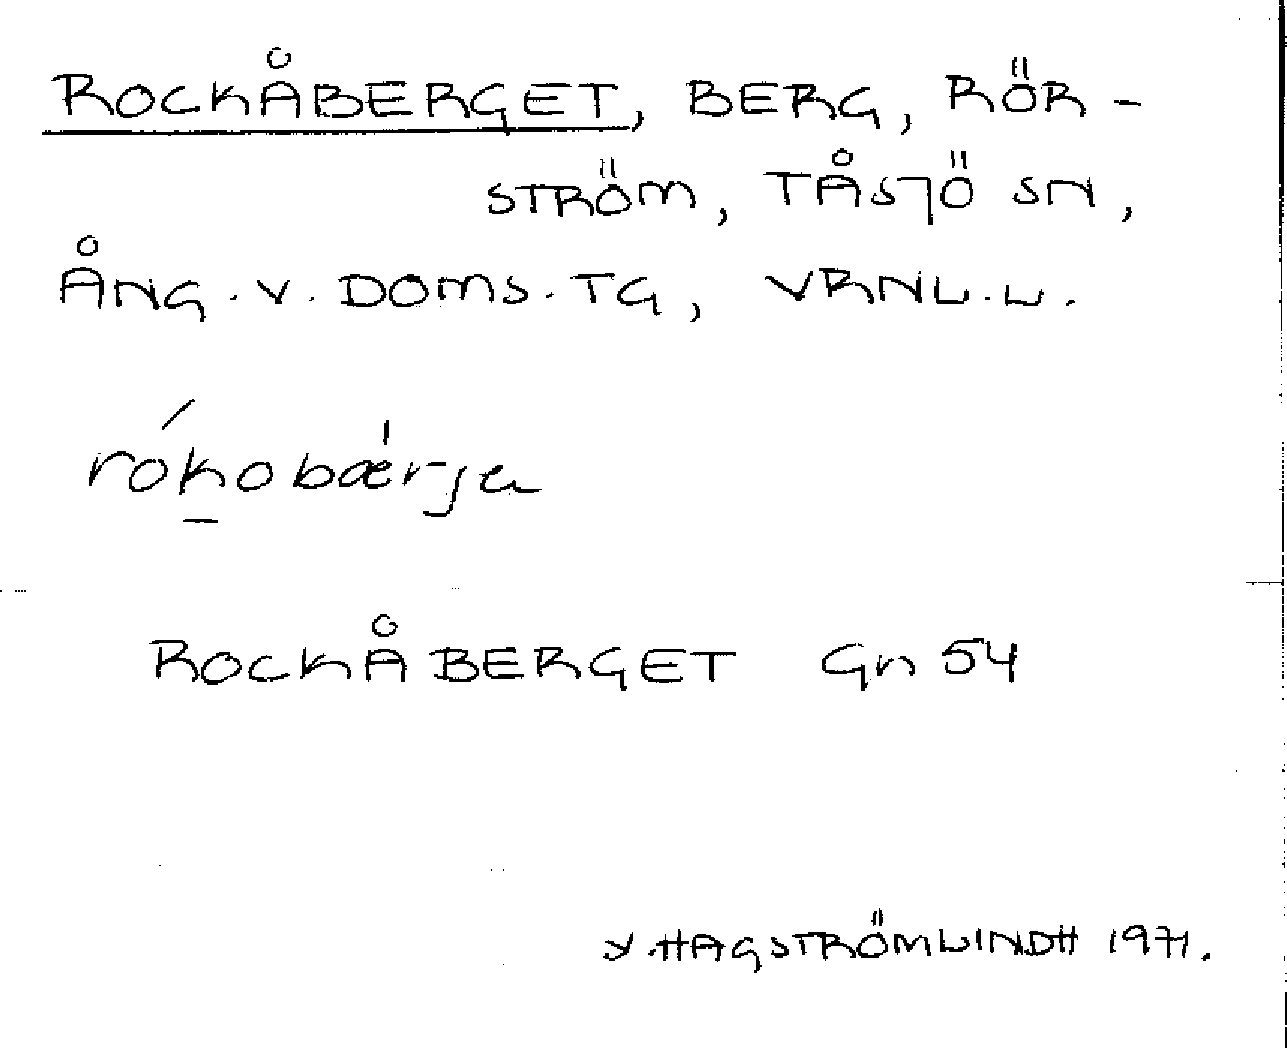 ROCKÅBERGET, BERG, RÖR-
STRÖM, TÅSJÖ SN,
ÅNG. V. DOMS. TG, VRNL. L.
rókobærjen
ROCKÅBERGET Gn 54
Y. HAGSTRÖMLINDH 1971.